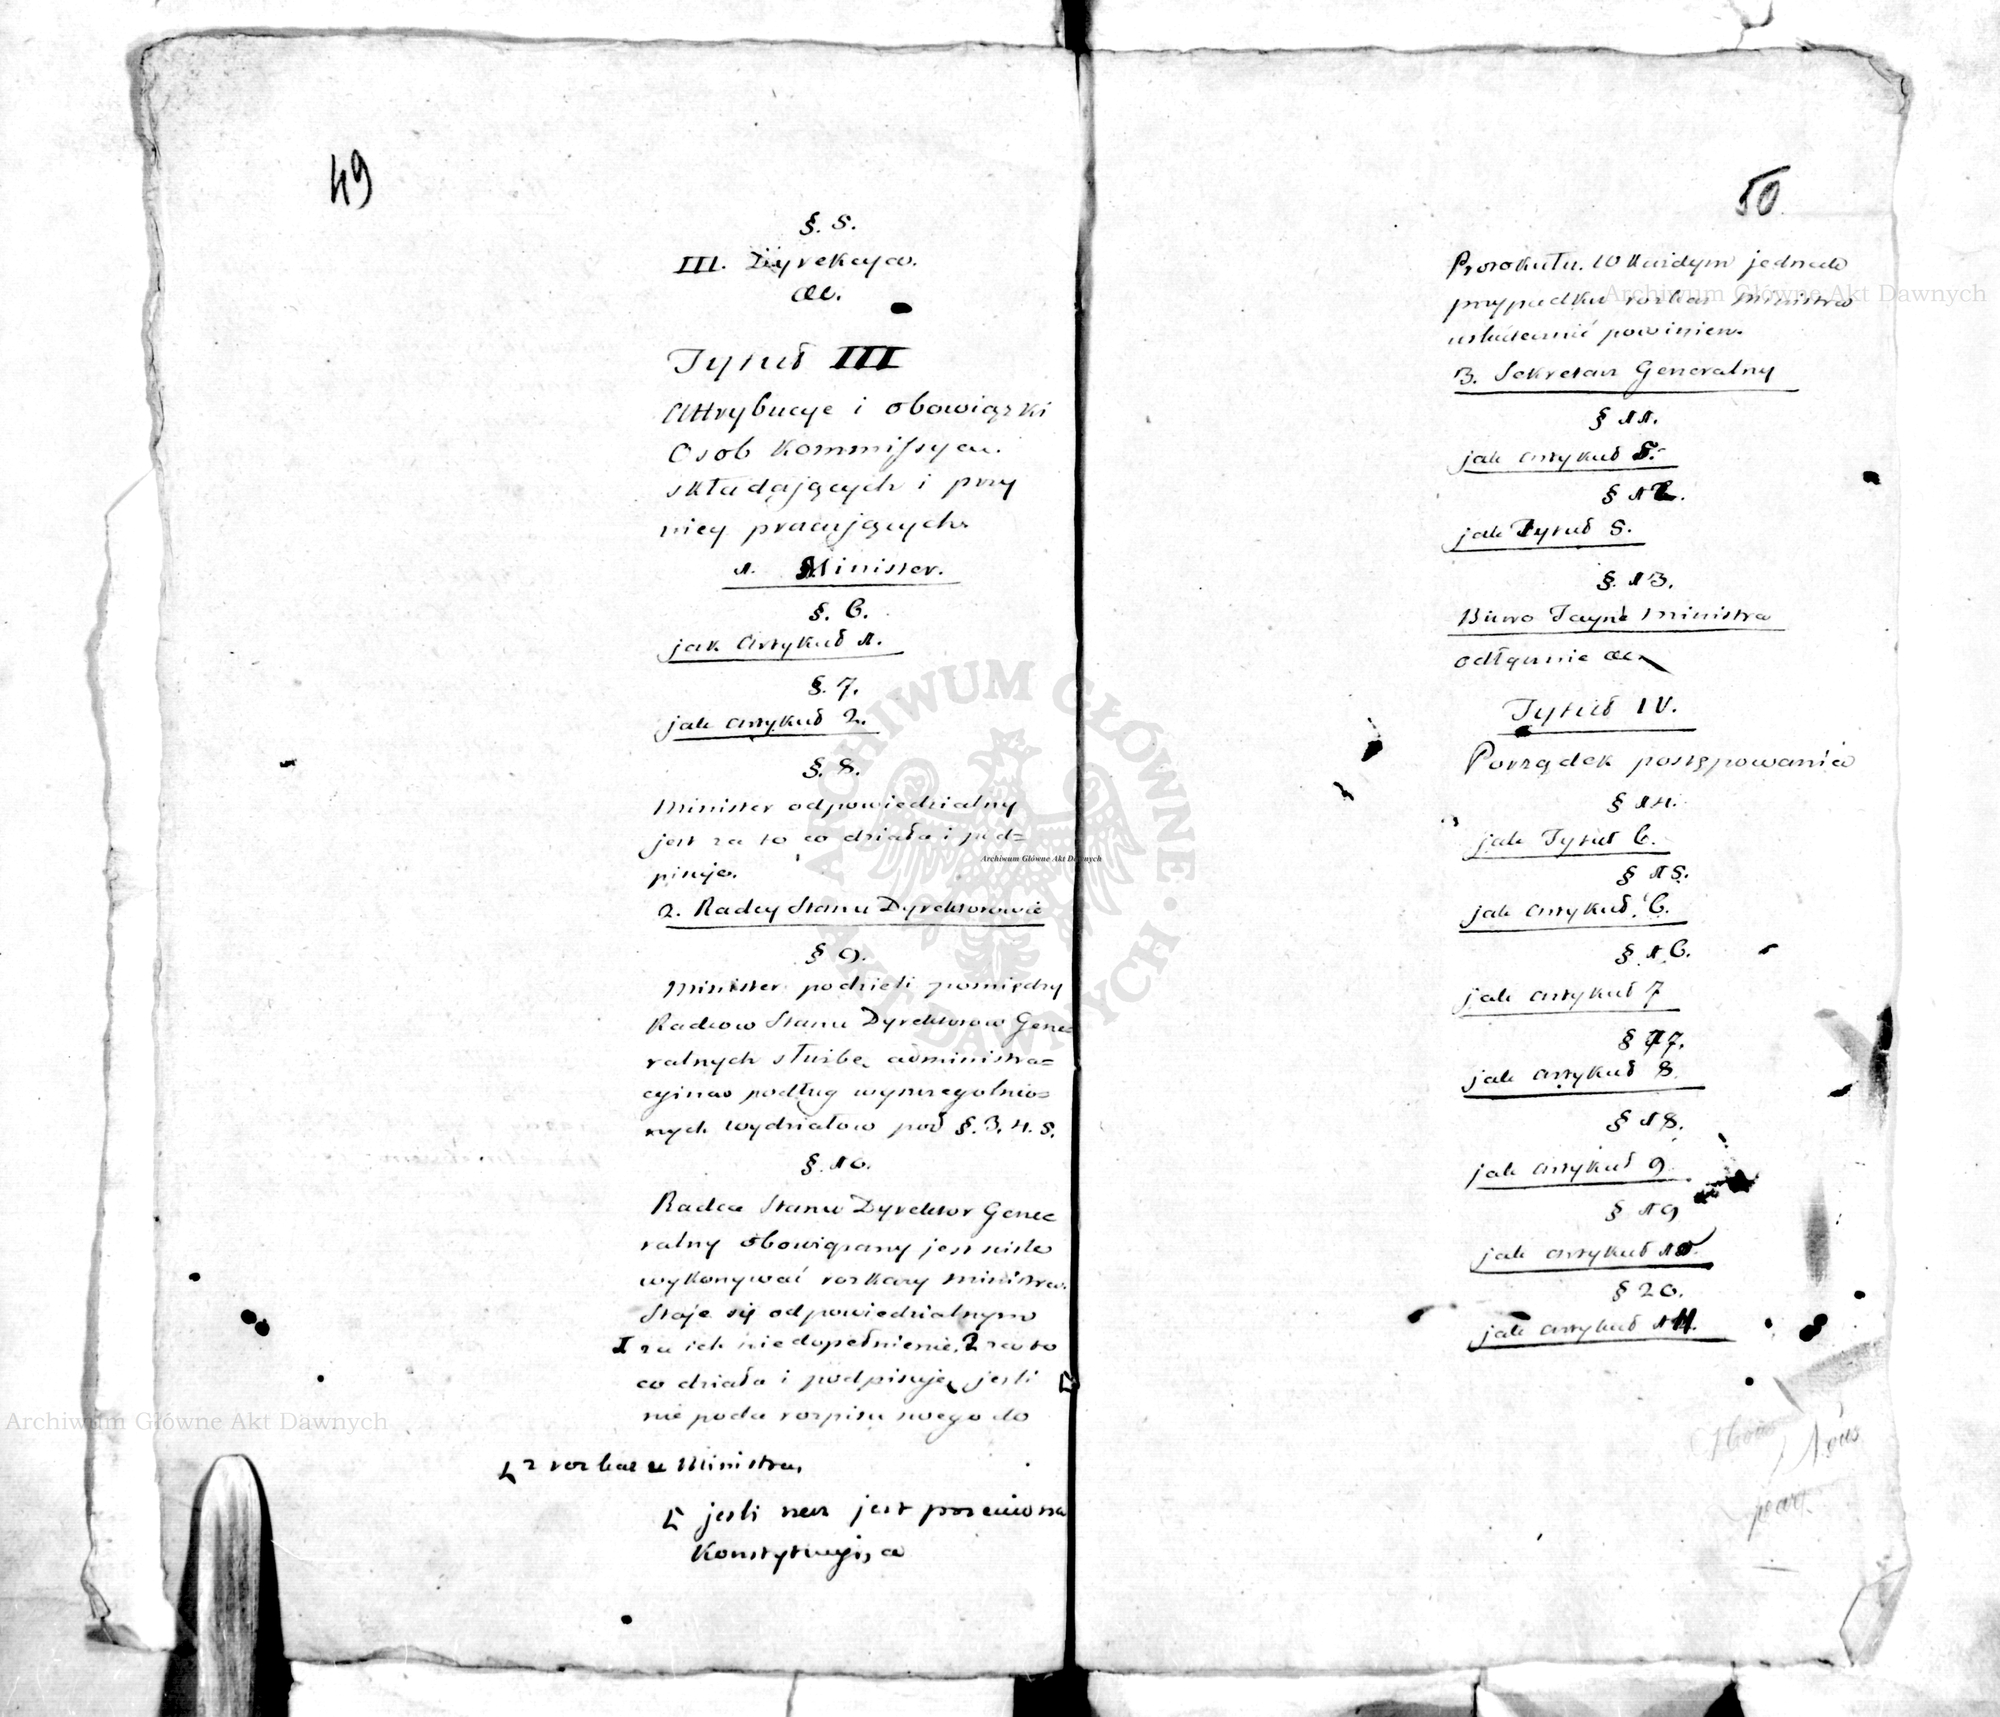 49
§. 5.
III. Dyrekcya.
&c.
Tytuł III
Attrybucye i obowiązki
Osob Kommissyą
składających i przy
niey pracujących.
1. Minister.
§. 6.
jak Artykuł 1.
§. 7.
jak Artykuł 2.
§. 8.
Minister odpowiedzialny
jest za to co działa i pod=
pisuje.
2. Radcy Stanu Dyrektorowie
§ 9.
Minister podzieli pomiędzy
Radcow Stanu Dyrektorow Gene=
ralnych służbę administra=
cyjną podług wyszczegolnio=
nych wydziałow pod §. 3. 4. 5.
§. 10.
Radca Stanu Dyrektor Gene
ralny obowiązany jest
wykonywać rozkazy Ministra.
Staje się odpowiedzialnym
1 za ich niedopełnienie, 2 za to
co działa i podpisuje, jeśli
nie poda rozpisu swego do
z rozkazu Ministra,
jeśli rzecz jest przeciwna
Konstytucyi, a
50
Protokułu. W każdym jednak
przypadku rozkaz Ministra
uskutecznić powinien.
3. Sekretarz Generalny
§ 11.
jak Artykuł 5.
§ 12.
jak Tytuł 5.
§. 13.
Biuro Tayne Ministra
odłącznie &c.
Tytuł IV.
Porządek postępowania
§ 14.
jak Tytuł 6.
§ 15.
jak Artykuł 6.
§ 16.
jak Artykuł 7
§ 17.
jak Artykuł 8
§ 18.
jak Artykuł 9
§ 19
jak Artykuł 10.
§ 20.
jak Artykuł 11.
Archiwum Główne Akt Dawnych
Archiwum Główne Akt Dawnych
Archiwum Główne Akt Dawnych
ARCHIWUM GŁÓWNE AKT DAWNYCH